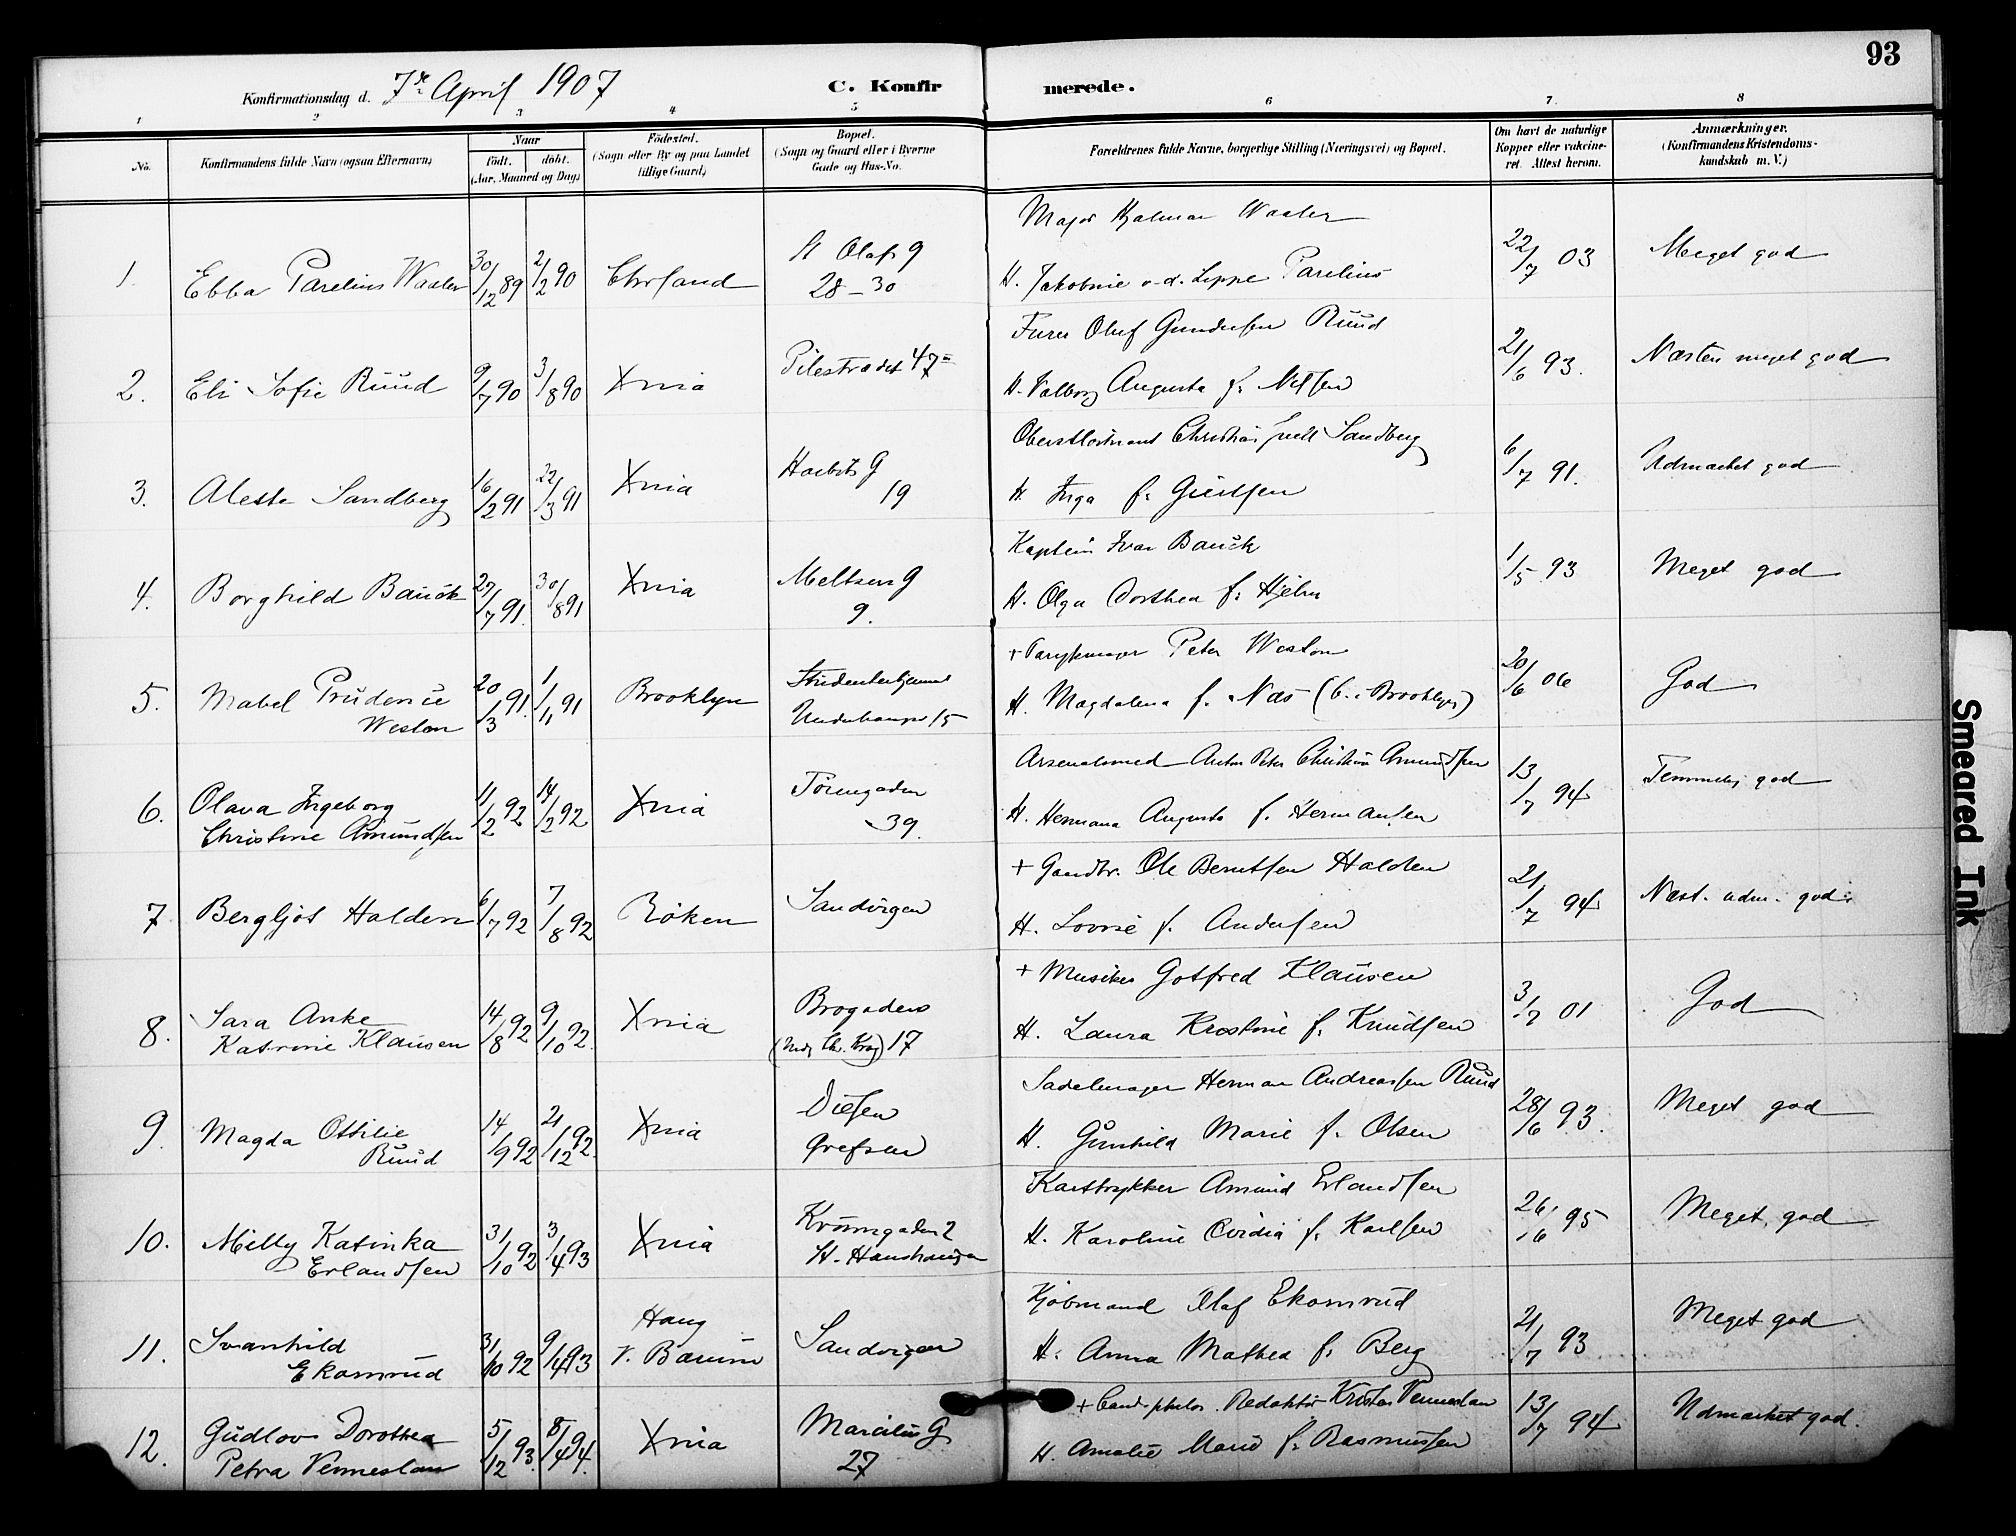 93
Konfirmationsdag d. 7de April 1907
C. Konfir merede.
1 2 3 4 5 6 7. 8
No.
Konfirmandens fulde Navn (ogsaa Efternavn)
Naar
født. døbt.
(Aar, Maaned og Dag)
Fødested.
(Sogn eller By og paa Landet
tillige Gaard)
Bopæl.
(Sogn og Gaard eller i Byerne
Gade og Hus-No.
Forældrenes fulde Navne, borgerlige Stilling (Næringsvei) og Bopæl.
Om havt de naturlige
Kopper eller vakcine-
ret. Attest herom.
Anmærkninger.
(Konfirmandens Kristendoms-
kundskab m. V.)
Major Hjalmar Waaler
1. Ebba Parelius Waaler 30/12 89 2/2 90 Chrsand St Olafs g 28-30
H. Jakobine v. d. Lippe Parelius 22/7 03 Meget god
Furer Oluf Gundersen Ruud
2. Eli Sofie Ruud 9/7 90 3/8 90 Xnia Pilestrædet 47
H. Valborg Augusta f. Nilsen 21/6 93. Næsten meget god
Oberstløitnant Christian Juell Sandberg
3. Aleste Sandberg 16/2 91 22/3 91 Xnia 19
H. Inga f. 6/7 91. Udmærket god
Kaptein Ivar Bauck
4. Borghild Bauck 27/7 91. 30/8 91 Xnia Meltzers g 9.
H. Olga Dorthea f. Hjelm 1/5 93 Meget god
+ Peter Weston
5. Mabel Prudencie
Weston 20/3 91. 1/11 91 Brooklyn Studenterhjemmet
Underhaugsv 15
H. Magdalena f. Næs (b. i Brooklyn) 20/6 06 God
Arsenalsmed Anton Peter Christian Amundsen
6. Olava Ingeborg
Christine Amundsen 11/2 92 14/2 92 Xnia
39.
H. Hermana Augusta f. Hermansen 13/7 94 Temmelig god
+ Gaardbr. Ole Berntsen Halden
7. Bergljot Halden 6/7 92 7/8 92 Røken Sandvigen
H. Lovise f. Andersen 21/7 94 Næst. udm. god
+ Musiker Gotfred Klausen
8. Sara Anke
Katrine Klausen 14/8 92 9/10 92. Xnia Brogaden
17
H. Laura Kristine f. Knudsen 3/7 01 God
Sadelmager Herman Andreassen Ruud
9. Magda Ottilie
Ruud 14/9 92 21/12 92. Xnia Disen
Grefsen
H. Gunhild Marie f. Olsen 28/6 93. Meget god
Karttrykker Amund Erlandsen
10. Milly Katinka
Erlandsen 31/10 92 3/4 93 Xnia Krumgaden 2
St. Hanshaugen
H. Karoline Ovidia f. Karlsen 26/6 95 Meget god
Kjøbmand Olaf Ekornrud
11. Svanhild
Ekornrud 31/10 92 9/4 93 Haug
V. Bærum Sandvigen
H. Anna Mathea f. Berg 21/7 93 Meget god
+ Cand. philos. Redaktør Kristen Venneslan
12. Gudlov Dorothea
Petra Venneslan 5/12 93. 8/4 94. Xnia G
27
H. Amalie Marie f. Rasmussen 13/7 94 Udmærket god.
Smeared Ink